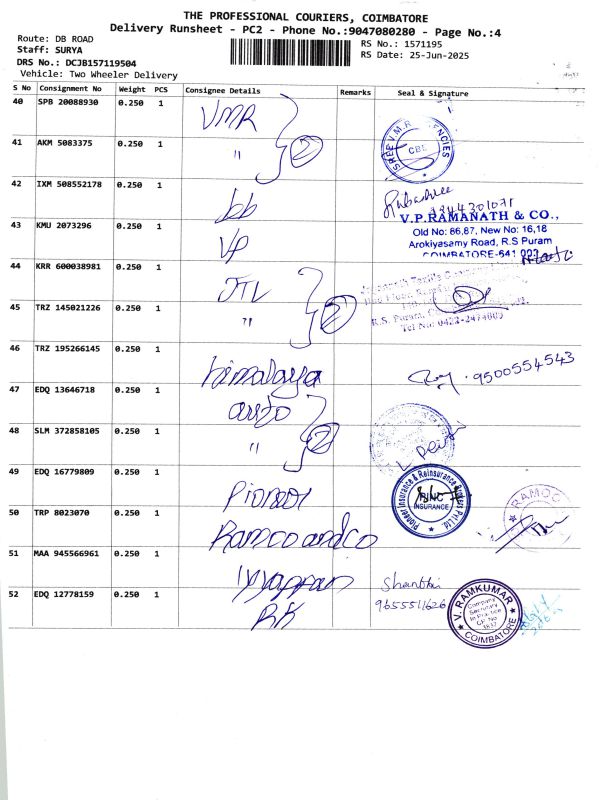 THE PROFESSIONAL COURIERS, COIMBATORE
Delivery Runsheet - PC2 - Phone No.:9047080280 - Page No.:4
Route: DB ROAD
Staff: SURYA
DRS No.: DCJB157119504
Vehicle: Two Wheeler Delivery
RS No.: 1571195
RS Date: 25-Jun-2025
S No Consignment No Weight PCS Consignee Details Remarks Seal & Signature
40 SPB 20088930 0.250 1 VMR
41 AKM 5083375 0.250 1 " 2
SREE V.M.R. CBE
42 IXM 508552178 0.250 1 bb
43 KMU 2073296 0.250 1 VP
V.P.RAMANATH & CO.,
Old No: 86,87, New No: 16,18
Arokiyasamy Road, R.S Puram
COIMBATORE-641 002
44 KRR 600038981 0.250 1 JTV
45 TRZ 145021226 0.250 1 " 2
R.S. Puram,
Tel No: 0422-2474009
46 TRZ 195266145 0.250 1 himalaya
9500554543
47 EDQ 13646718 0.250 1 auto
48 SLM 372858105 0.250 1 " 2
49 EDQ 16779809 0.250 1 Pioneer
Pioneer Insurance & Reinsurance Brokers Pvt Ltd
INSURANCE
50 TRP 8023070 0.250 1 Ramco and co
RAMCO
51 MAA 945566961 0.250 1 Iyyappan
Shanthi
9655511626
52 EDQ 12778159 0.250 1 RK
V. RAMKUMAR
Company
Secretary
In Practice
CP No
3837
COIMBATORE